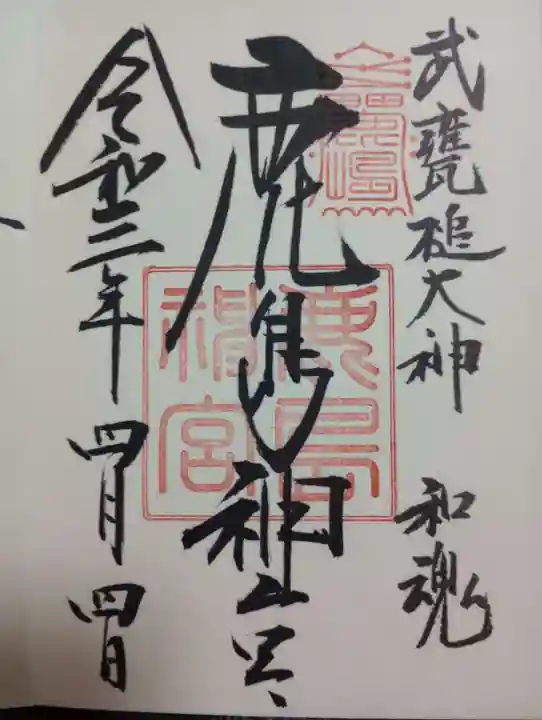 武甕槌大神 和魂
鹿島神宮
鹿島神宮
令和三年 四月 四日